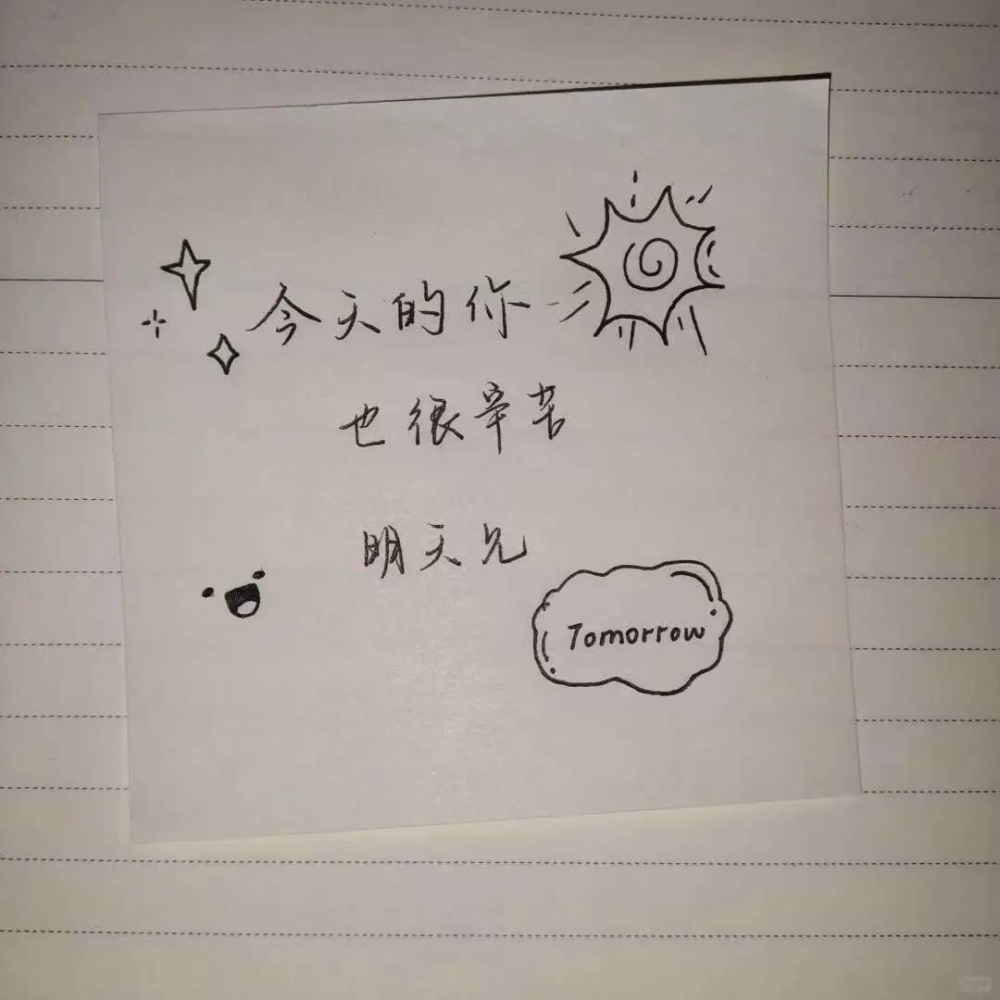 今天的你
也很辛苦
明天见
Tomorrow